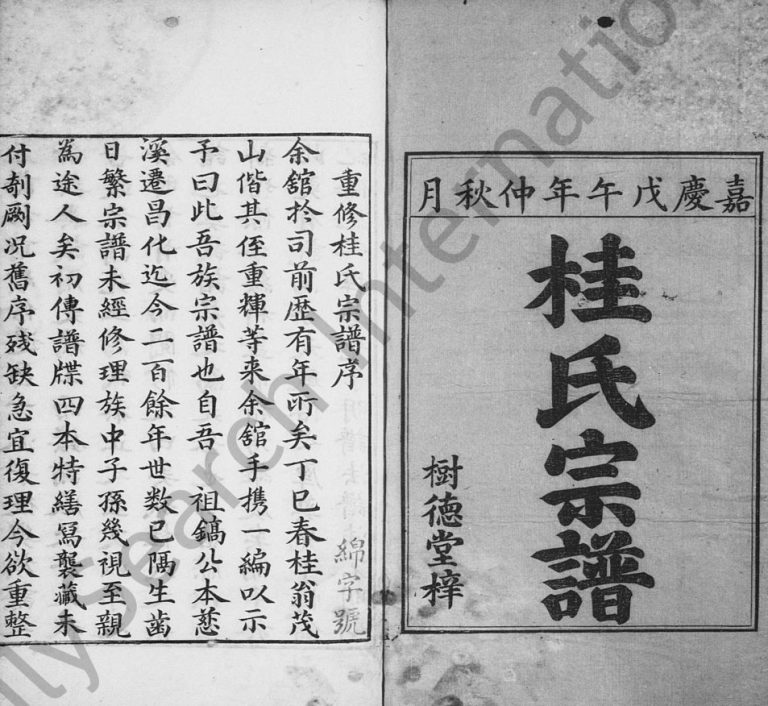 嘉慶戊午年仲秋月
桂氏宗譜
樹德堂梓
重修桂氏宗譜序
綿字號
余舘於司前歴有年所矣丁巳春桂翁茂
山偕其侄重輝等来余舘手携一編以示
予曰此吾族宗譜也自吾 祖鎬公本慈
溪遷昌化迄今二百餘年世数已隔生齒
日繁宗譜未經修理族中子孫幾視至親
為途人矣初傳譜牒四本特繕冩襲藏未
付剞劂况舊序殘缺急宜復理今欲重整
ly Search Internation